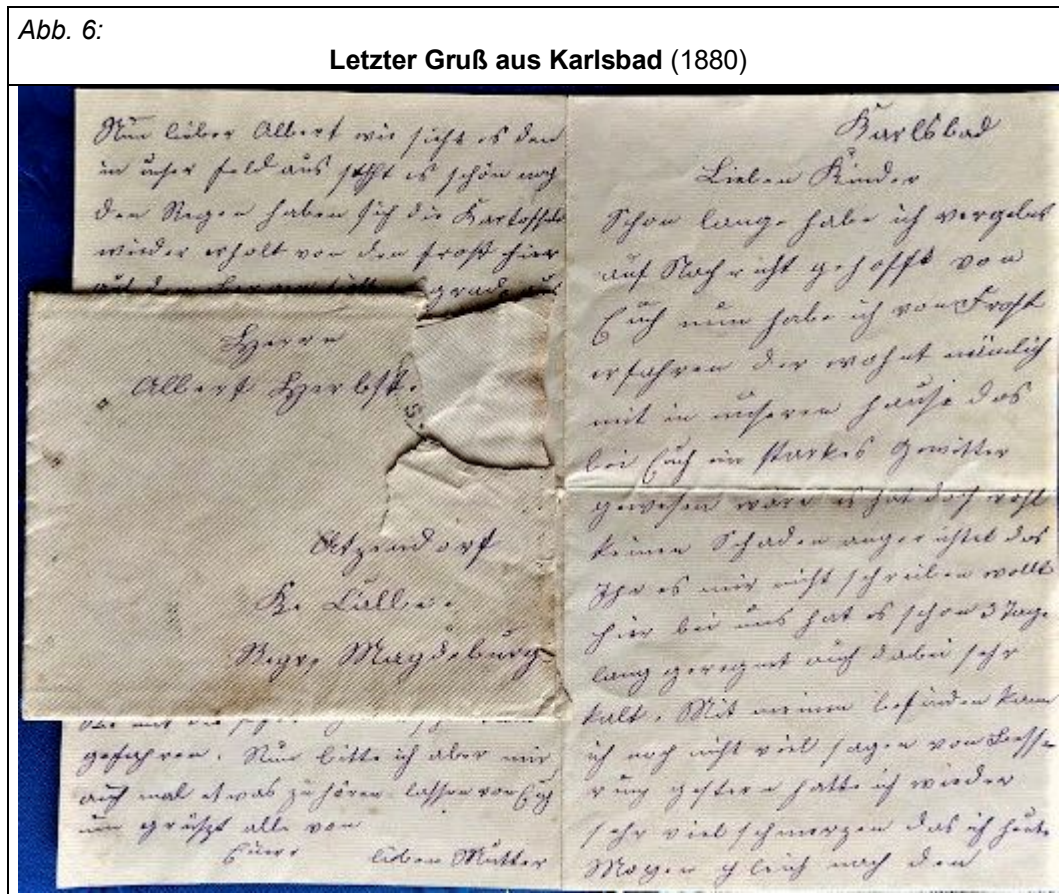 Abb. 6:
Letzter Gruß aus Karlsbad (1880)
Nun lieber Albert wie sieht es den
in unser Feld aus steht es schön nach
den Regen haben sich die Kartoffeln
wieder erholt von den Frost hier
grade aus
Herrn
Albert Herbst.
Atzendorf
Kr. Calbe.
Magdeburg
gefahren. Nun bitte ich aber mir
auch mal etwas zu hören lassen von Euch
nun grüßt alle von
Eure lieben Mutter
Karlsbad
Lieben Kinder
Schon lange habe ich vergebens
auf Nachricht gehofft von
Euch nun habe ich von Frost
erfahren der wohnt nämlich
mit in unseren Hause das
bei Euch ein starkes Gewitter
gewesen wäre es hat doch wohl
keinen Schaden angerichtet das
Ihr es mir nicht schreiben wollt
hier bei uns hat es schon 3 Tage
lang geregnet auch dabei sehr
kalt. Mit meinen befinden kann
ich noch nicht viel sagen von Besse-
rung gestern hatte ich wieder
sehr viel schmerzen das ich heute
Morgen gleich nach den